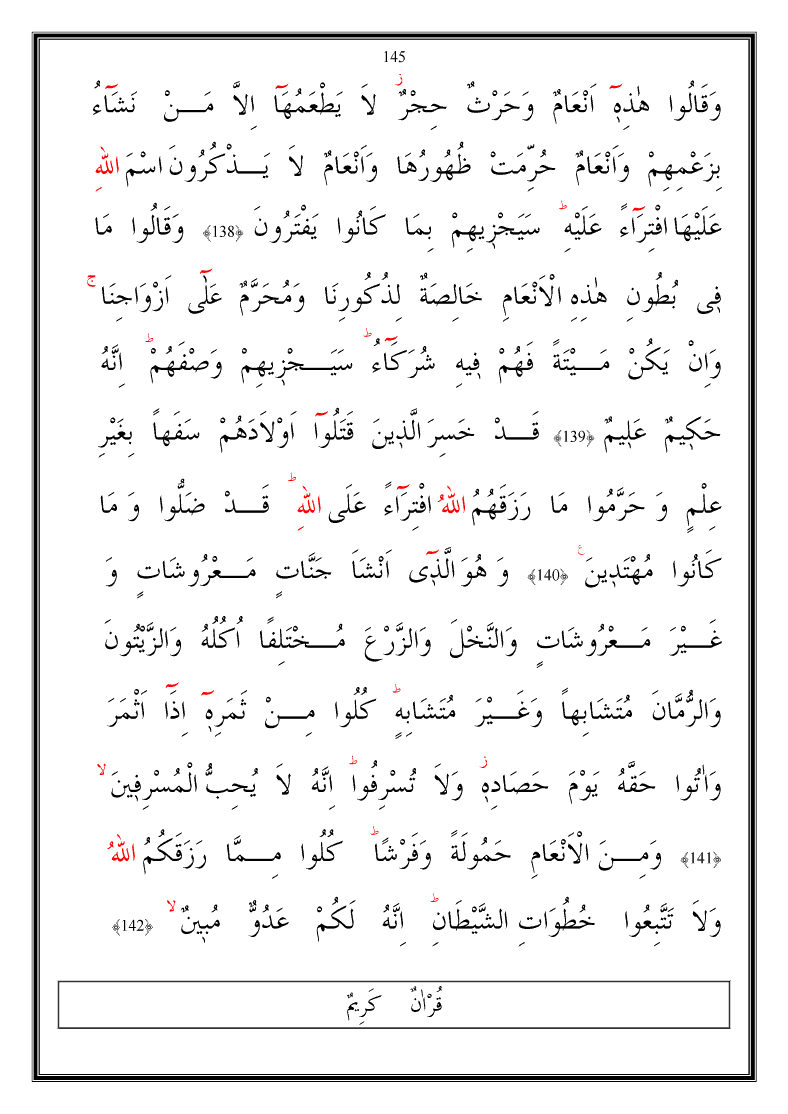 145
وَقَالُوا هٰذِه۪ٓ اَنْعَامٌ وَحَرْثٌ حِجْرٌۘ لاَ يَطْعَمُهَٓا اِلاَّ مَــنْ نَشَٓاءُ
بِزَعْمِهِمْ وَاَنْعَامٌ حُرِّمَتْ ظُهُورُهَا وَاَنْعَامٌ لاَ يَــذْكُرُونَ اسْمَ اللهِ
عَلَيْهَا افْتِرَٓاءً عَلَيْهِؕ سَيَجْز۪يهِمْ بِمَا كَانُوا يَفْتَرُونَ ﴿138﴾ وَقَالُوا مَا
ف۪ى بُطُونِ هٰذِهِ الْاَنْعَامِ خَالِصَةٌ لِذُكُورِنَا وَمُحَرَّمٌ عَلٰٓى اَزْوَاجِنَاۚ
وَاِنْ يَكُنْ مَــيْتَةً فَهُمْ ف۪يهِ شُرَكَٓاءُؕ سَيَــجْز۪يهِمْ وَصْفَهُمْؕ اِنَّهُ
حَك۪يمٌ عَل۪يمٌ ﴿139﴾ قَــدْ خَسِرَ الَّذ۪ينَ قَتَلُٓوا اَوْلاَدَهُمْ سَفَهاً بِغَيْرِ
عِلْمٍ وَ حَرَّمُوا مَا رَزَقَهُمُ اللهُ افْتِرَٓاءً عَلَى اللهِؕ قَــدْ ضَلُّوا وَ مَا
كَانُوا مُهْتَد۪ينَ ع ﴿140﴾ وَ هُوَ الَّذ۪ٓى اَنْشَاَ جَنَّاتٍ مَــعْرُوشَاتٍ وَ
غَــيْرَ مَــعْرُوشَاتٍ وَالنَّخْلَ وَالزَّرْعَ مُــخْتَلِفًا اُكُلُهُ وَالزَّيْتُونَ
وَالرُّمَّانَ مُتَشَابِهاً وَغَــيْرَ مُتَشَابِهٍؕ كُلُوا مِــنْ ثَمَرِه۪ٓ اِذَٓا اَثْمَرَ
وَاٰتُوا حَقَّهُ يَوْمَ حَصَادِه۪ؗ وَلاَ تُسْرِفُواؕ اِنَّهُ لاَ يُحِبُّ الْمُسْرِف۪ينَۙ
﴿141﴾ وَمِــنَ الْاَنْعَامِ حَمُولَةً وَفَرْشًاؕ كُلُوا مِــمَّا رَزَقَكُمُ اللهُ
وَلاَ تَتَّبِعُوا خُطُوَاتِ الشَّيْطَانِؕ اِنَّهُ لَكُمْ عَدُوٌّ مُب۪ينٌۙ ﴿142﴾
قُرْاٰنٌ كَرِيمٌ